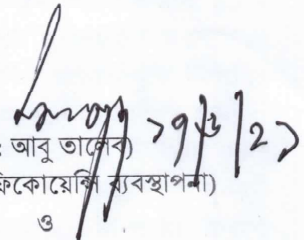 ১৭/৩/২১
: আবু তালেব)
ফ্রিকোয়েন্সি ব্যবস্থাপনা)
ও